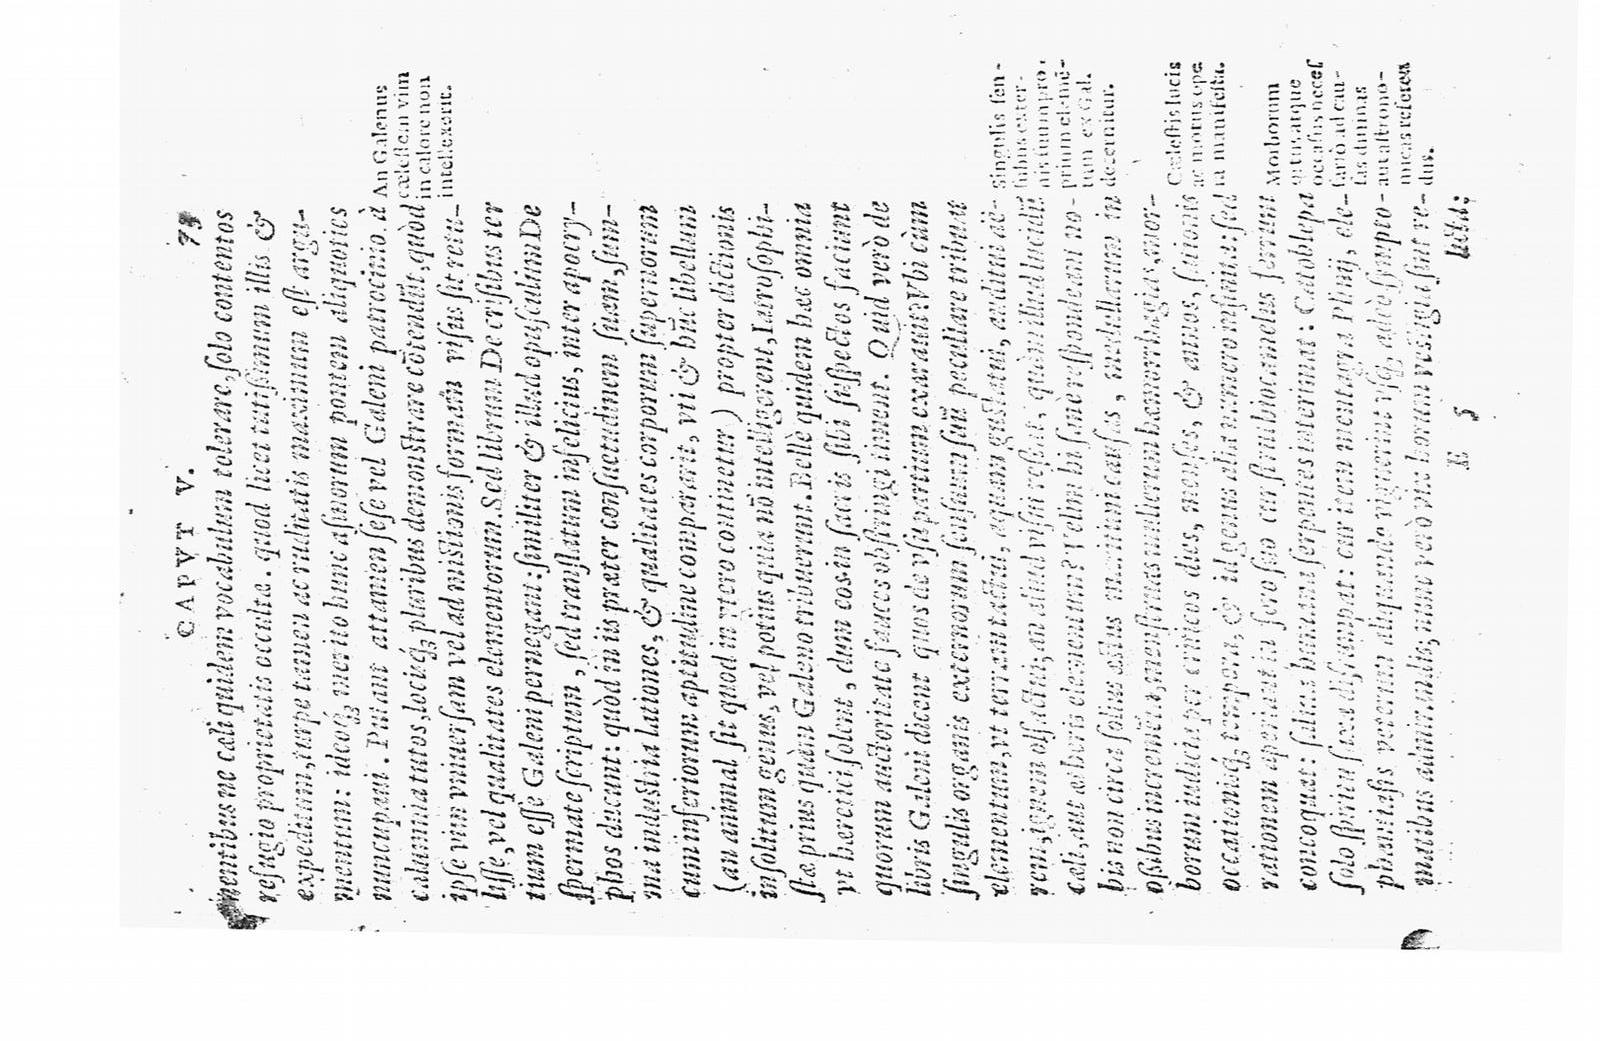 CAPVT V. 73
mentibus ne cæli quidem vocabulum tolerare, ſolo contentos
refugio proprietatis occultæ. quod licet tutiſsimum illis &
expeditum, turpe tamen ac ruditatis maximum eſt argu-
mentum: ideoq́ꝫ merito hunc aſinorum pontem aliquoties
nuncupaui. Putant attamen ſeſe vel Galeni patrocinio à
calumnia tutos, locisq́ꝫ pluribus demonſtrare cõtendũt, quòd
ipſe vim vniuerſam vel ad miſtionis formam viſus ſit retu-
liſſe, vel qualitates elementorum. Sed librum De criſibus ter
tium eſſe Galeni pernegant: ſimiliter & illud opuſculum De
ſpermate ſcriptum, ſed tranſlatum infelicius, inter apocry-
phos ducunt: quòd in iis præter conſuetudinem ſuam, ſum-
ma induſtria lationes, & qualitates corporum ſupernorum
cum inferiorum aptitudine comparârit, vti & hũc libellum
(an animal ſit quod in vtero continetur) propter dictionis
inſolitum genus, vel potius quia nõ intelligerent, Iatroſophi-
ſtæ prius quàm Galeno tribuerunt. Bellè quidem hæc omnia
vt hæretici ſolent, dum eos in ſacris ſibi ſuſpectos faciunt
quorum auctoritate fauces obſtringi timent. Quid verò de
libris Galeni dicent quos de vſu partium exarauit? Vbi cùm
ſingulis organis externorum ſenſuum ſuũ peculiare tribuat
elementum, vt terram tactui, aquam guſtatui, auditui aë-
rem, ignem olfactui; an aliud viſui reſtat, quàm illud lucidũ
cæli, aut ætheris elementum? Velim hi ſanè reſpondeant no-
bis non circa ſolius æſtus maritimi cauſas, medullarum in
oſsibus incremẽta, menſtruas mulierum hæmorrhagias, mor-
borum iudicia per criticos dies, menſes, & annos, ſationis
occationiſq́ꝫ tempora, & id genus alia numero infinita: ſed
rationem aperiant
concoquat: ſaliua humana ſerpentes interimat: Catoblepa
ſolo
phantiaſis veterum aliquando viguerint
matibus admirandis; nunc verò vix horum veſtigia ſint re-
E 5 licta;
An Galenus
cæleſtem vim
in calore non
intellexerit.
Singulis ſen-
ſibus exter-
nis ſuum pro-
prium elemẽ-
tum ex Gal.
decernitur.
Cæleſtis lucis
ac motus ope
ra manifeſta.
Morborum
ortus atque
occaſus neceſ
ſariò ad cau-
ſas diuinas
aut aſtrono-
micas referen
dus.